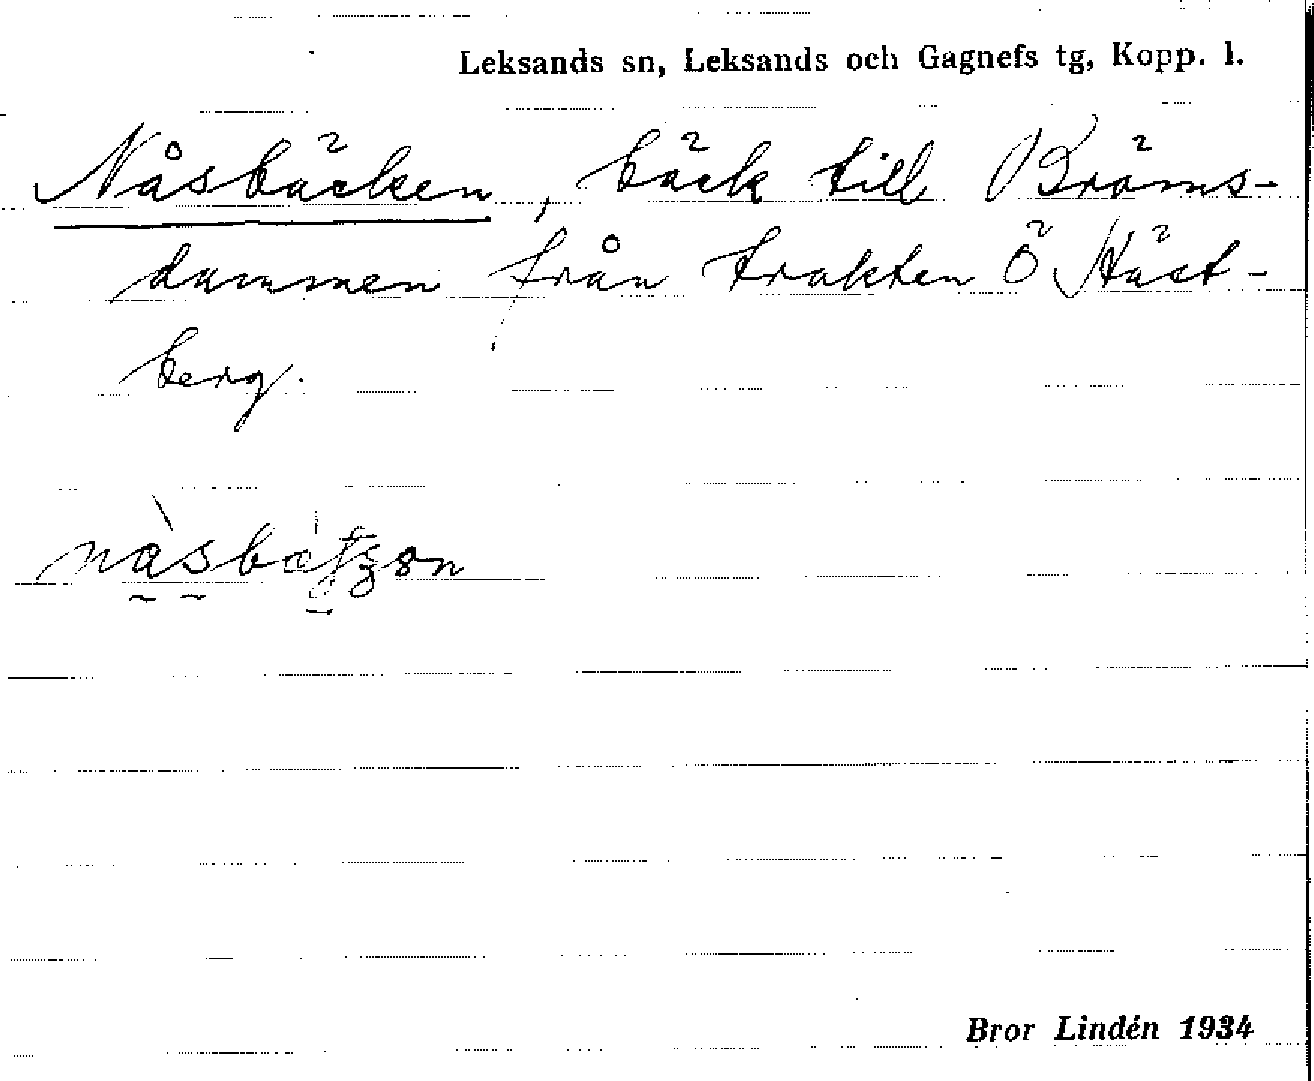 Leksands sn, Leksands och Gagnefs tg, Kopp. l.
Nåsbäcken, bäck till Bräms-
dammen från trakten Ö Häst-
berg.
Bror Lindén 1934